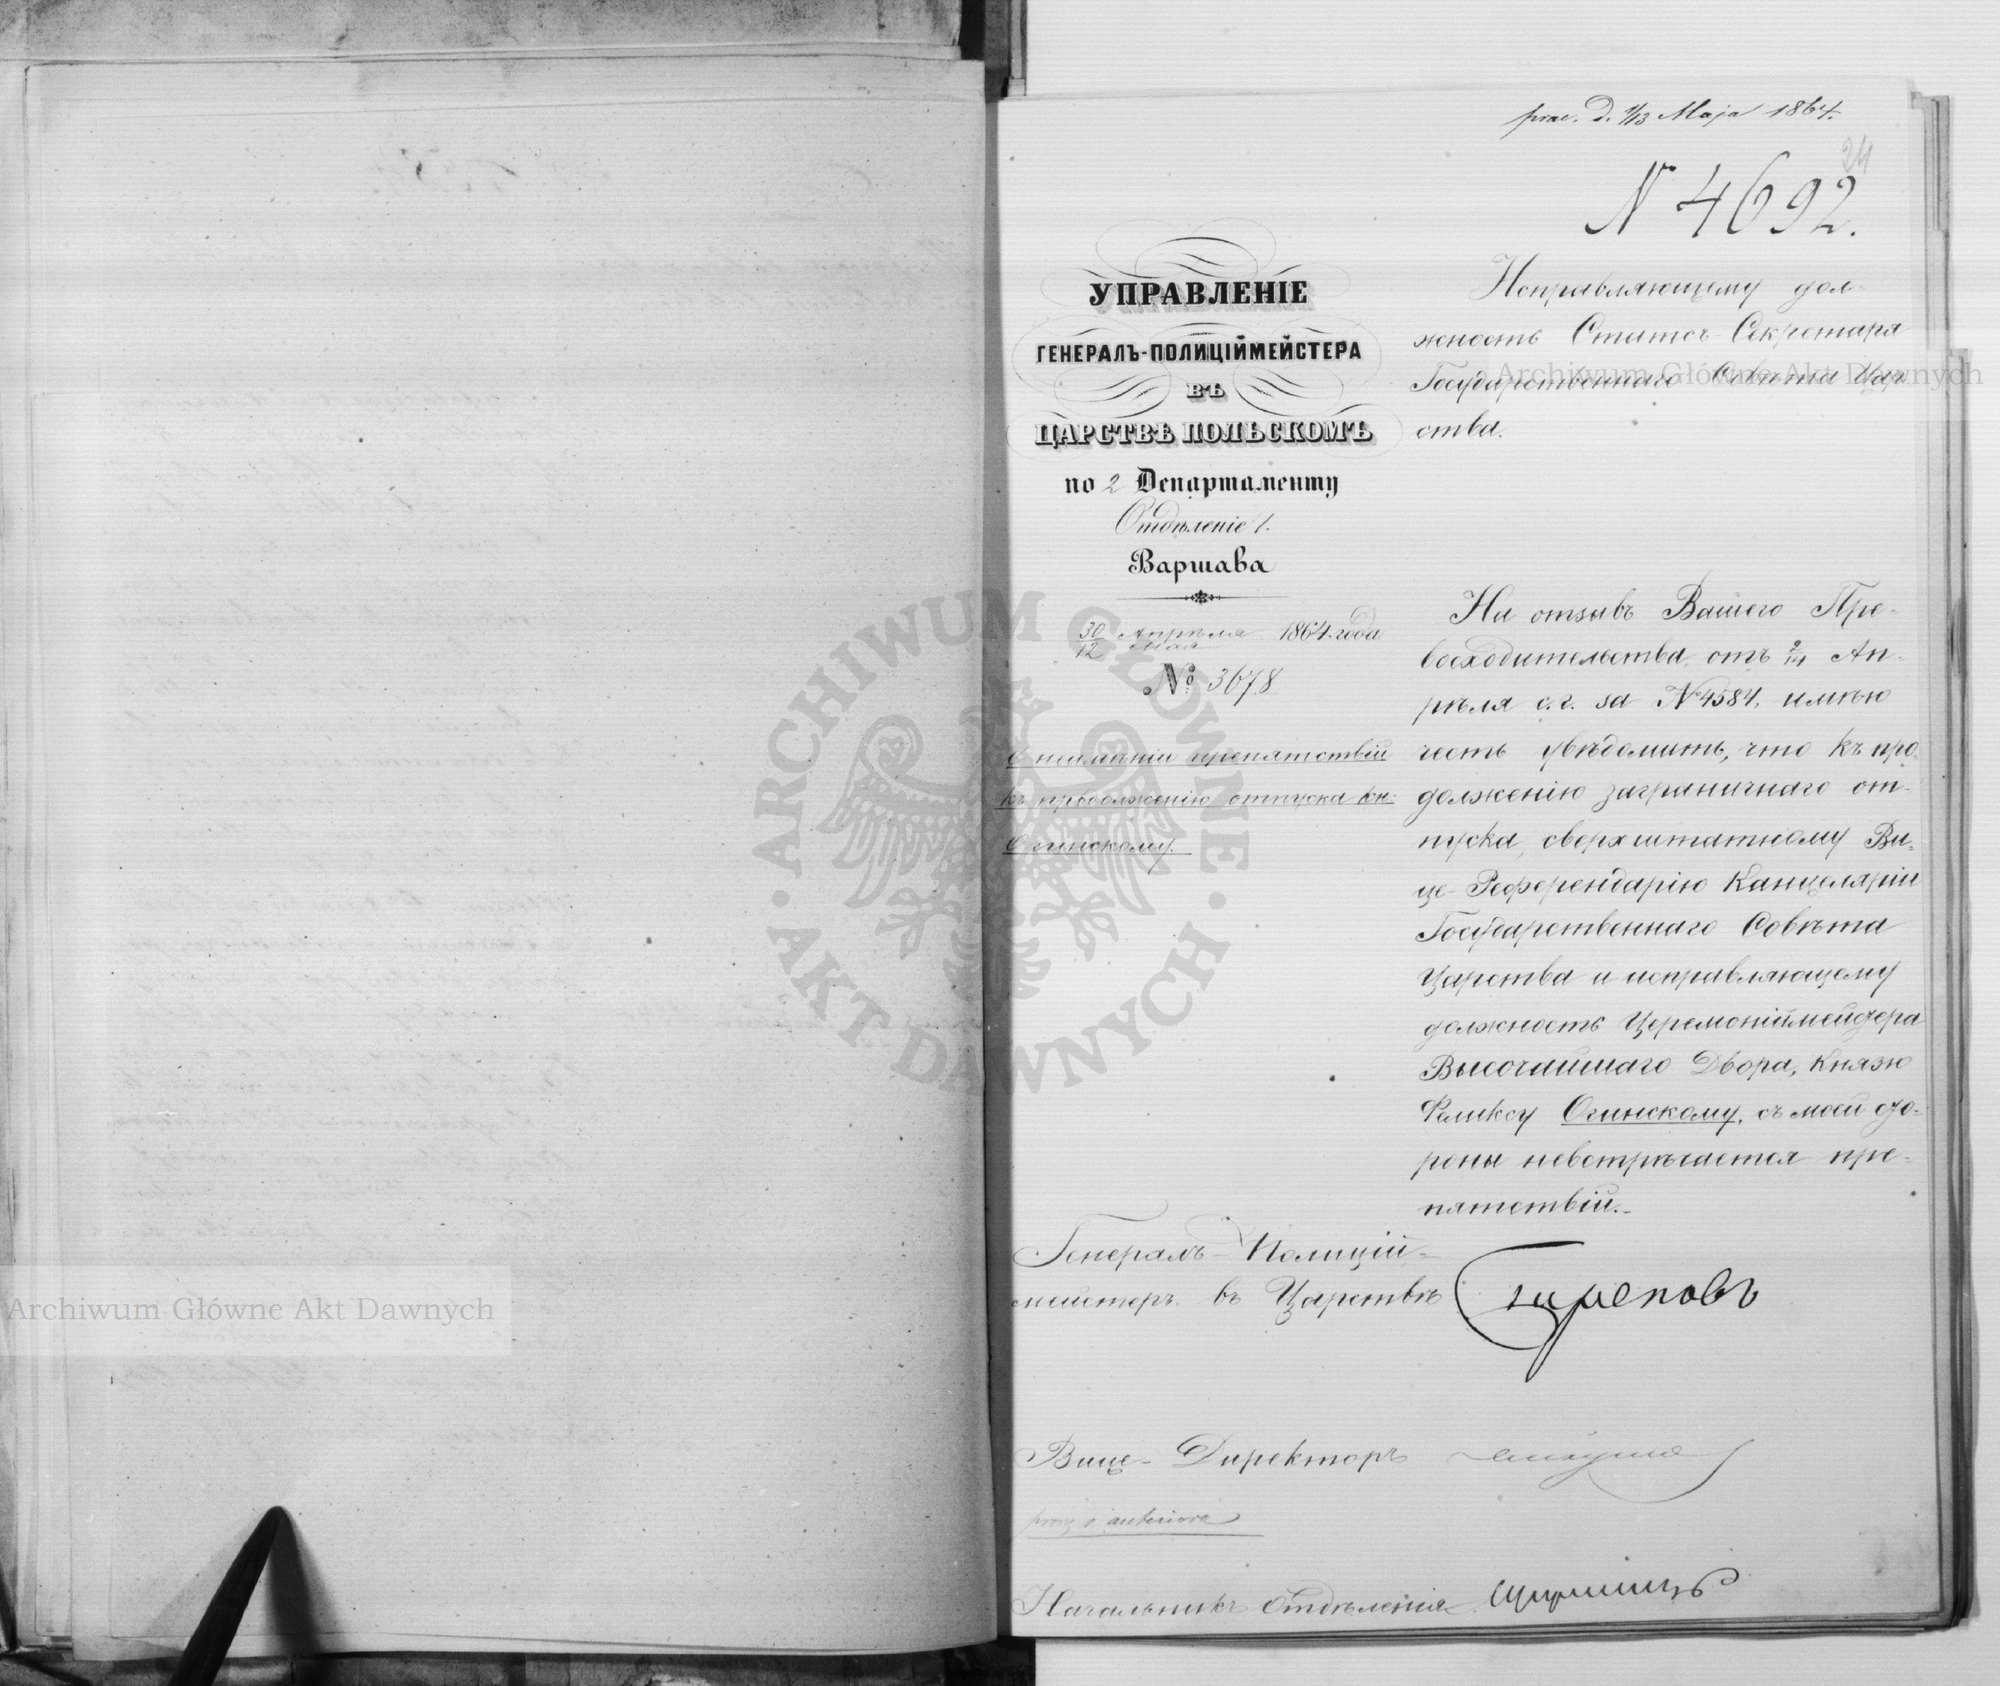 prae. d. 1/13 Maja 1864.
24
N 4692.
УПРАВЛЕНІЕ
ГЕНЕРАЛЪ-ПОЛИЦІЙМЕЙСТЕРА
ВЪ
ЦАРСТВѢ ПОЛЬСКОМЪ
по 2 Департаменту
Отдѣленіе 1.
Варшава
30/12 Апрѣля/Мая 1864 года
№ 3678
О неимѣніи препятствій
къ продолженію отпуска кн.
Огинскому.
Исправляющему дол-
жность Статсъ-Секретаря
Государственнаго Совѣта Цар
ства.
На отзывъ Вашего Пре-
восходительства, отъ 2/14 Ап-
рѣля с. г. за № 4584, имѣю
честь увѣдомить, что къ про-
долженію заграничнаго от-
пуска, сверхштатному Ви-
це-Референдарію Канцеляріи
Государственнаго Совѣта
Царства и исправляющему
должность Церемоніймейстера
Высочайшаго Двора, Князю
Феликсу Огинскому, съ моей сто-
роны невстрѣчается пре-
пятствій.
Генералъ-Полицій-
мейстеръ въ Царствѣ Треповъ
Вице-Директоръ
anteriora
Начальникъ Отдѣленія
Archiwum Główne Akt Dawnych
Archiwum Główne Akt Dawnych
ARCHIWUM GŁÓWNE · AKT DAWNYCH ·